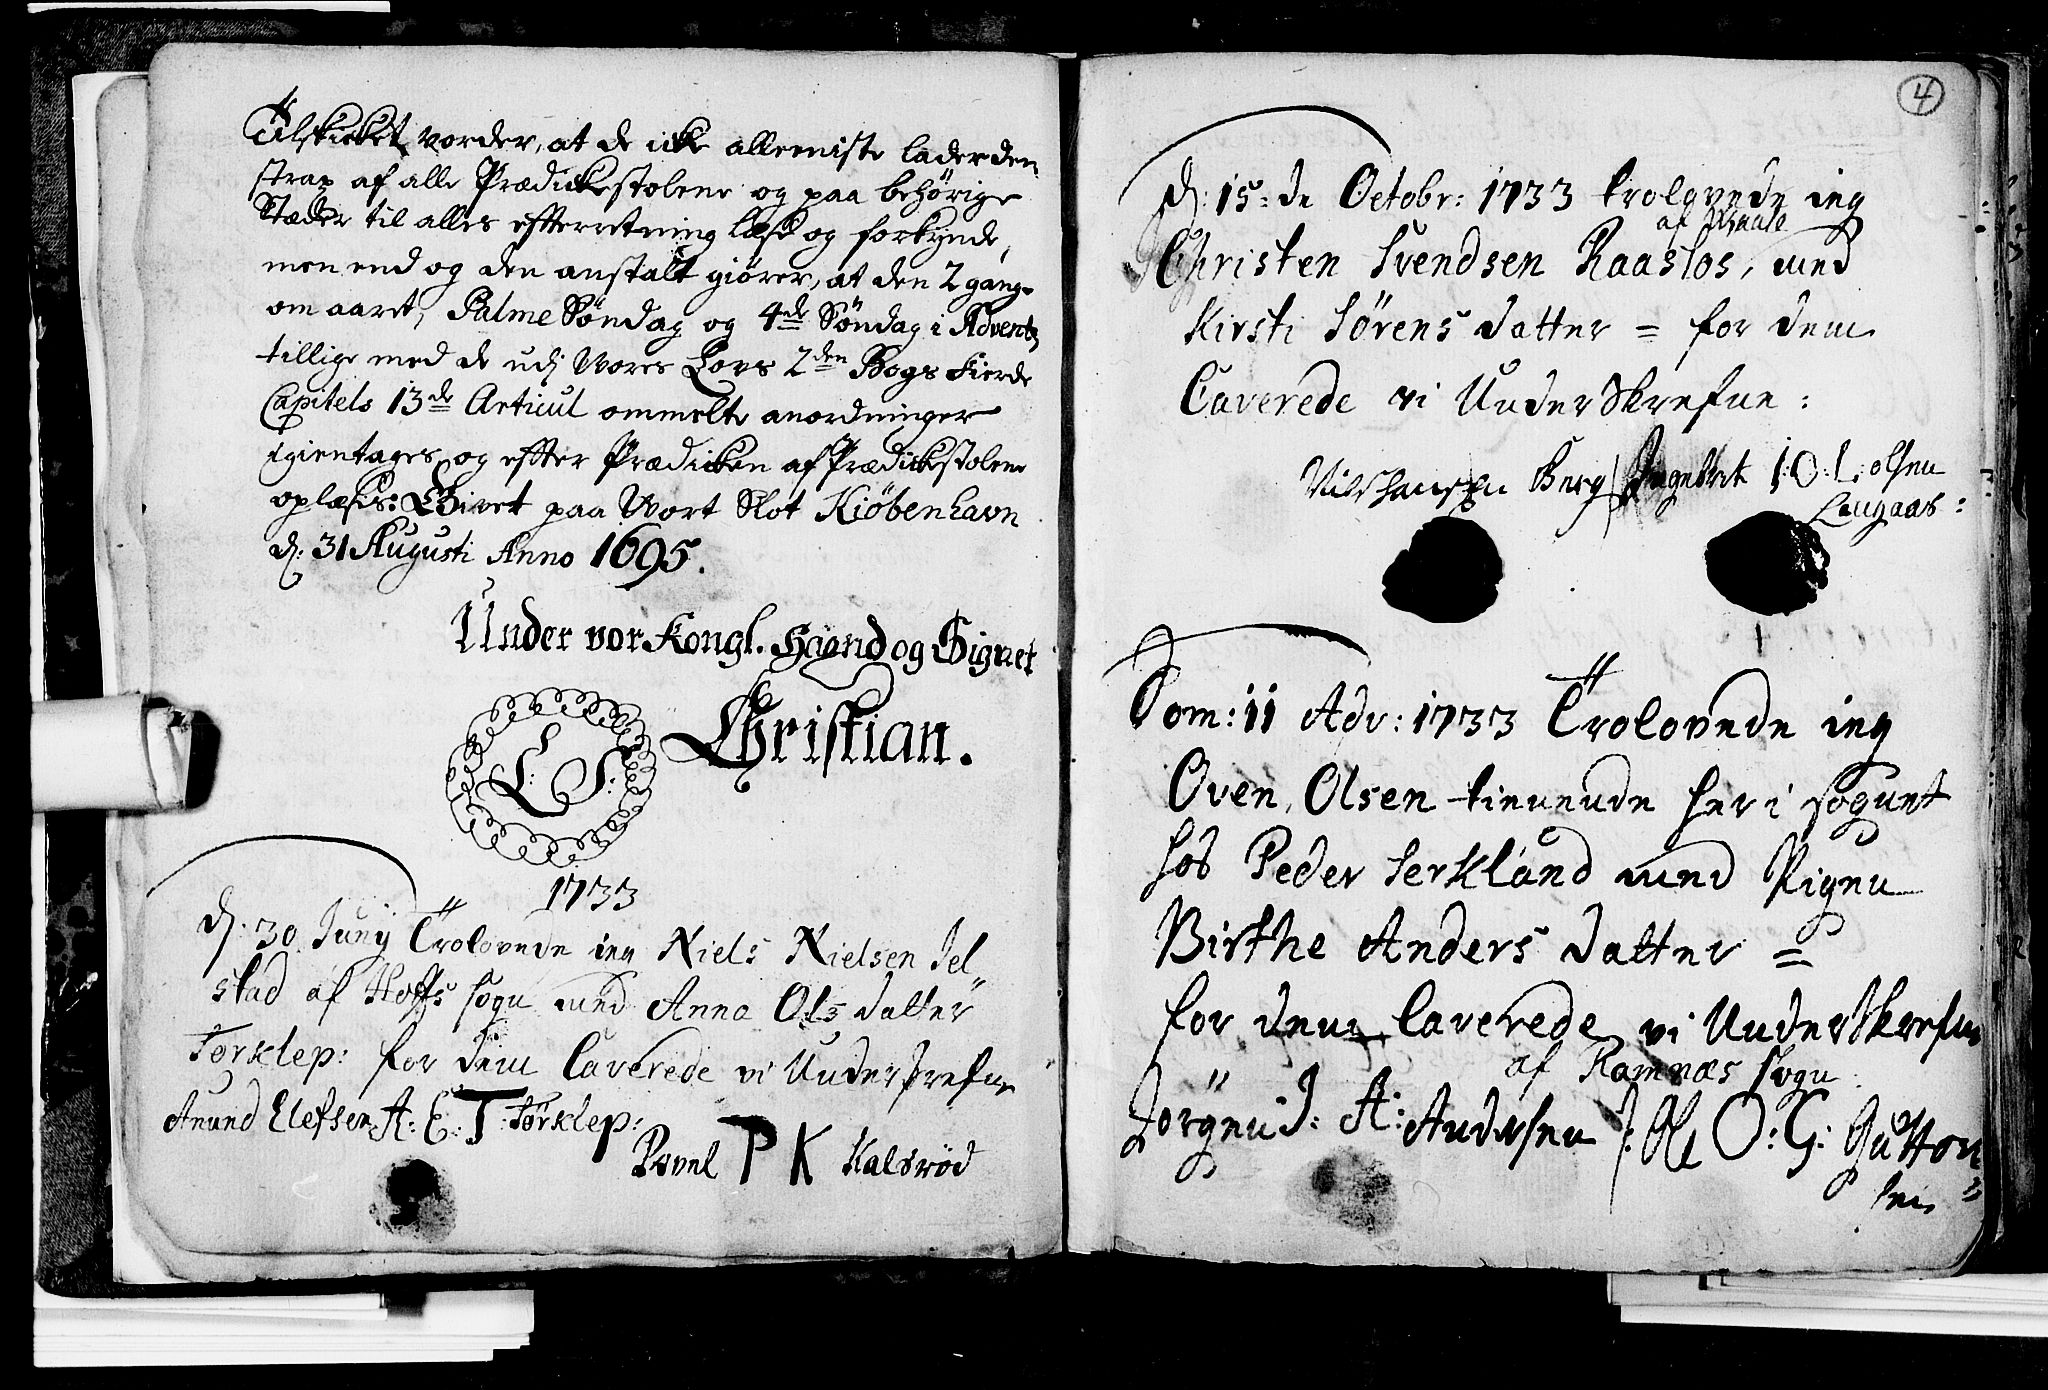 Tilskicket vorder, at de icke alleeniste lader den
strax af alle Prædickestolene og paa behørige
Stæder til alles efterretning læse og forkynde,
men end og den anstalt giører, at den 2 gange
om aaret, Palme Søndag og 4de Søndag i Advent,
tillige med de udj Vores Lovs 2den Bogs Fierde
Capitels 13de Articul ommelte anordninger
igientages, og efter Prædicken af Prædickestolene
oplæsis. Givet paa Vort Slot Kiøbenhavn
d: 31 Augusti Anno 1695.
Under vor Kongl. Haand og Signet
L: S:
Christian.
1733
d: 30 Junij Trolovede ieg Niels Nielsen Jel-
stad af Hoffs sogn med Anna Ols datter
Tørklep: for dem Caverede vi Underskrefne
Anund Elefsen A: E: T: Tørklep:
Povel P K Kalsrød
4
d: 15:de Octobr: 1733 trolovede ieg
af
Christen Svendsen Raastos, med
Kirsti Sørens datter = for dem
Caverede vi Underskrefne:
Berg Ingebret I: O: L: olsen
Laugaas:
Dom: II Adv: 1733 Trolovede ieg
Oven Olsen tienende her i sognet
hos Peder Serkland med Pigen
Birthe Anders datter =
for dem Caverede vi Underskrefne
af Ramnæs sogn
Jörgen J: A: Andersen O: G: Gutton
sen